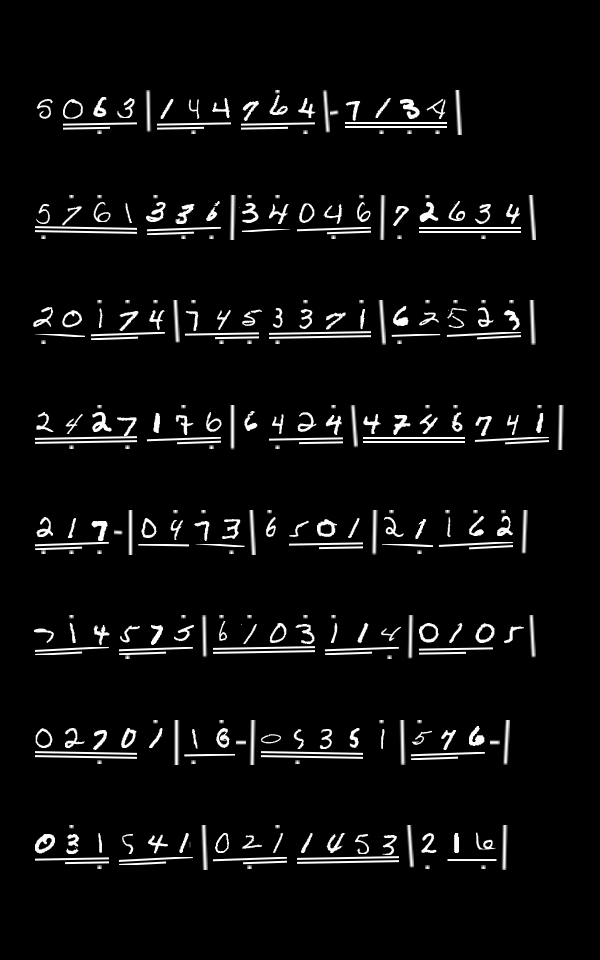 5063|144764|-7134|
5761336|34046|72634|
20174|7453371|62523|
2427176|6424|4746741|
217-|0473|6501|21162|
714575|6103114|0105|
02701|16-|05351|576-|
031541|0211453|216|